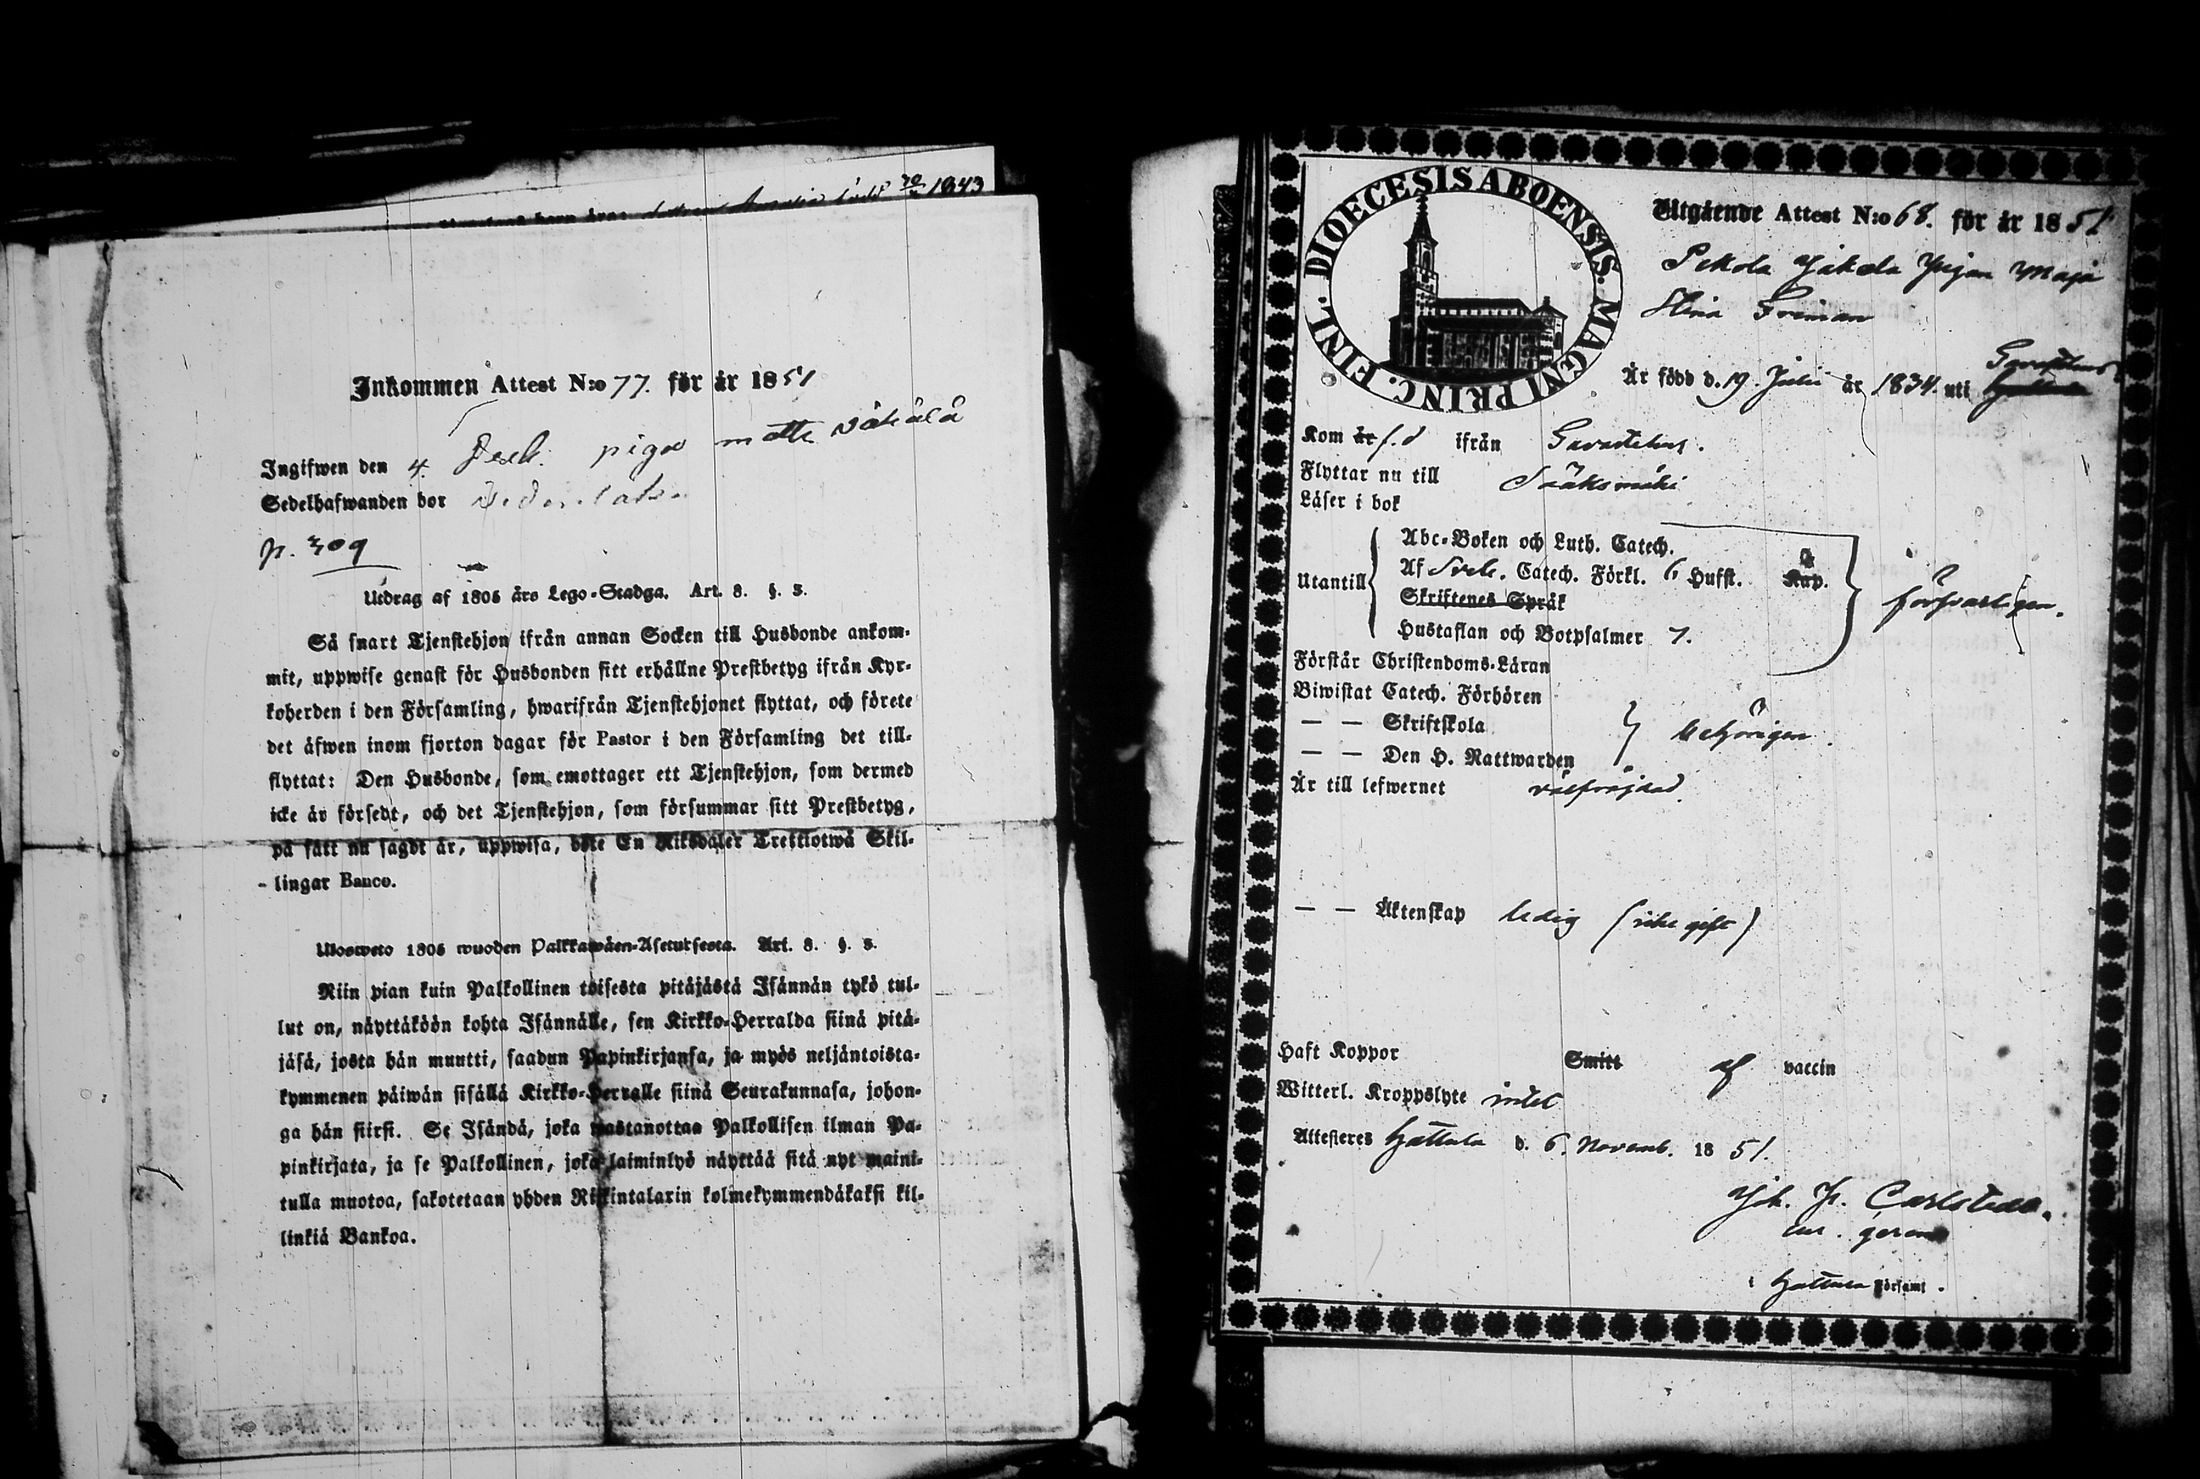 1843
Inkommen Attest N:o 77. för år 1851
Ingifwen den 4. Decb. piga
Sedelhafwanden bor
p. 309
Utdrag af 1805 års Lego-Stadga. Art. 8. §. 3.
Så snart Tjenstehjon ifrån annan Socken till Husbonde ankom-
mit, uppwise genast för Husbonden sitt erhållne Prestbetyg ifrån Kyr-
koherden i den Församling, hwarifrån Tjenstehjonet flyttat, och förete
det äfwen inom fjorton dagar för Pastor i den Församling det till-
flyttat: Den Husbonde, som emottager ett Tjenstehjon, som dermed
icke är försedt, och det Tjenstehjon, som försummar sitt Prestbetyg,
på sätt nu sagdt är, uppwisa, böte En Riksdaler Trettiotwå Skil-
lingar Banco.
Uloswето 1805 wuoden Palkkawäen-Asetuksesta. Art. 8. §. 3.
Niin pian kuin Palkollinen toisesta pitäjästä Isännän tykö tul-
lut on, näyttäköön kohta Isännälle, sen Kirkko-Herralda siinä pitä-
jäsä, josta hän muutti, saadun Papinkirjansa, ja myös neljäntoista-
kymmenen päiwän sisällä Kirkko-Herralle siinä Seurakunnasa, johon-
ga hän siirsi. Se Isändä, joka wastanottaa Palkollisen ilman Pa-
pinkirjata, ja se Palkollinen, joka laiminlyö näyttää sitä nyt maini-
tulla muotoa, sakotetaan yhden Riikintalarin kolmekymmendäkaksi kil-
linkiä Bankoa.
FINL. DIOECESIS ABOENSIS. MAGNI PRINC.
Utgående Attest N:o 68. för år 1851
Pekola Jakola Pigan Maja
Stina
Är född d. 19. Julii år 1834. uti Tavastehus
Hattula
Kom år s. d ifrån Tavastehus.
Flyttar nu till Sääksmäki
Läser i bok
Utantill
Abc-Boken och Luth. Catech.
Af Sveb. Catech. Förkl. 6 Hufst. Kap.
Skriftenes Språk
Hustaflan och Botpsalmer 7.
försvarligen.
Förstår Christendoms-Läran
Biwistat Catech. Förhören
— — Skriftskola
— — Den H. Nattwarden
behörigen.
Är till lefwernet välfräjdad.
— — Äktenskap ledig (icke gift)
Haft Koppor Smitt af vaccin
Witterl. Kroppslyte intet
Attesteres Hattula d. 6. Novemb. 1851.
Joh. F. Carlstedt.
cur. gerens
i Hattula Församl.